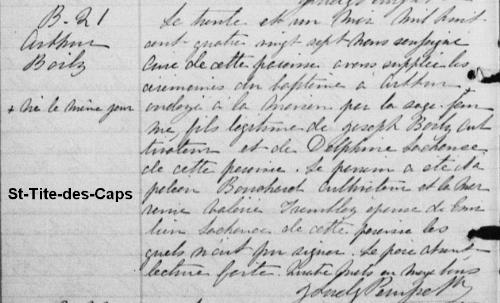 B. 21
Arthur
Bortz
+ né le même jour
St-Tite-des-Caps
Le trente et un Mars Mil huit
cent quatre vingt sept nous soussigné
curé de cette paroisse avons suppléé les
cérémonies du baptême à Arthur
ondoyé à la maison par la sage-fem
me, fils légitime de Joseph Bortz, cul
tivateur et de Delphine Lachance
de cette paroisse. Le parrain a été Na
poléon Bouchard cultivateur et la mar
raine Valérie Tremblay épouse de
lien Lachance de cette paroisse les
quels n'ont pu signer. Le père absent
lecture faite. quatre mots en marge bons